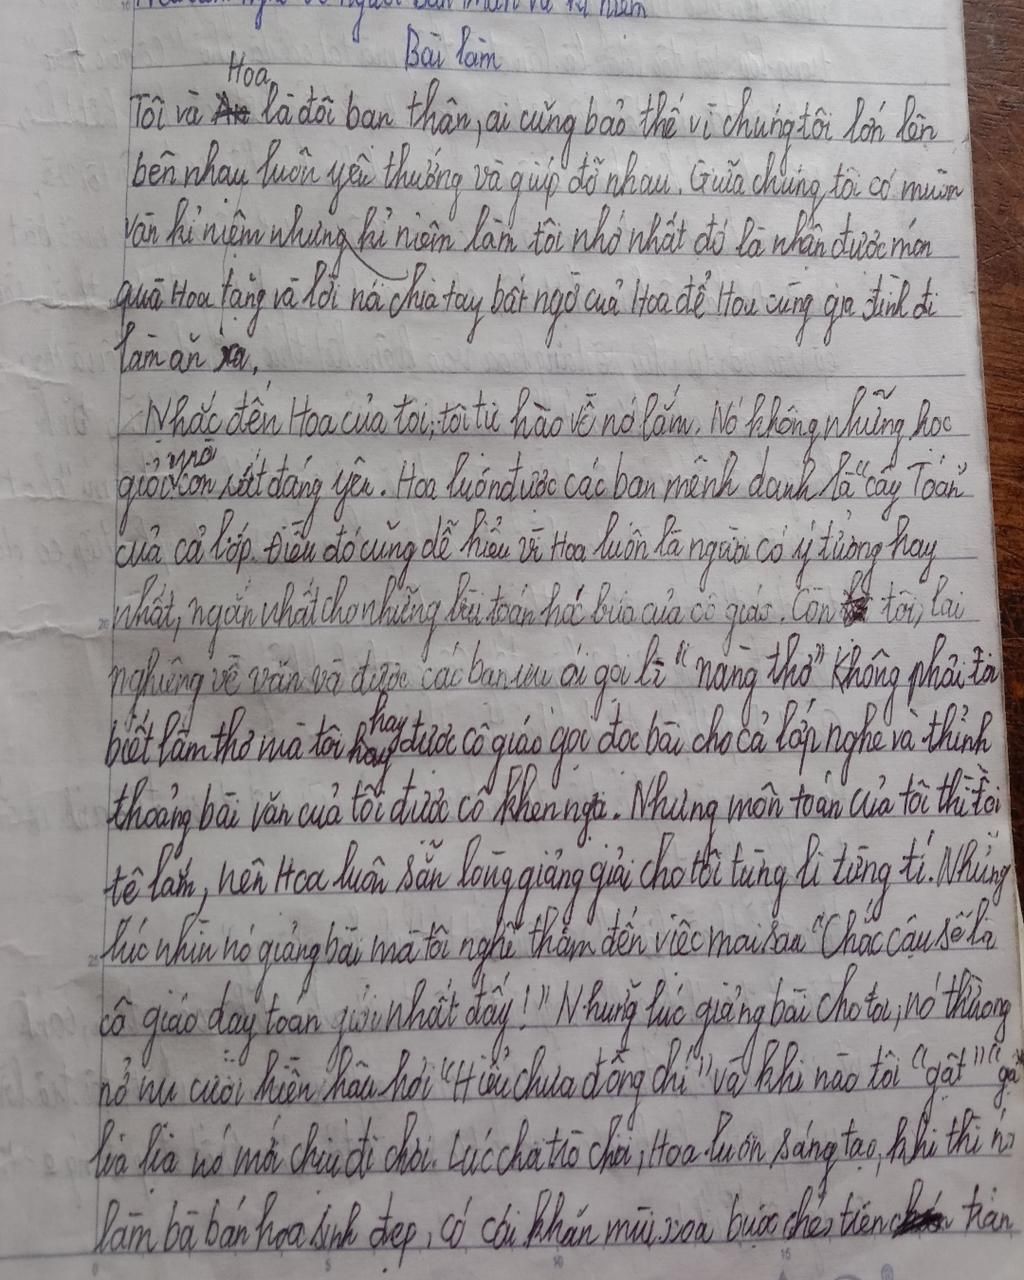 người bạn thân và kỉ niệm
Bài làm
Hoa
Tôi và là đôi bạn thân, ai cũng bảo thế vì chúng tôi lớn lên
bên nhau luôn yêu thương và giúp đỡ nhau. Giữa chúng tôi có muôn
vàn kỉ niệm nhưng kỉ niệm làm tôi nhớ nhất đó là nhận được món
quà Hoa tặng và lời nói chia tay bất ngờ của Hoa để Hoa cùng gia đình đi
làm ăn xa.
Nhắc đến Hoa của tôi, tôi tự hào về nó lắm. Nó không những học
mà
giỏi còn rất đáng yêu. Hoa luôn được các bạn mệnh danh là "cây Toán"
của cả lớp. Điều đó cũng dễ hiểu vì Hoa luôn là người có ý tưởng hay
nhất, ngắn nhất cho những bài toán hóc búa của cô giáo. Còn tôi, lại
nghiêng về văn và được các bạn ưu ái gọi là "nàng thơ" không phải tôi
hay
biết làm thơ mà tôi hay được cô giáo gọi đọc bài cho cả lớp nghe và thỉnh
thoảng bài văn của tôi được cô khen ngợi. Nhưng môn toán của tôi thì tồi
tệ lắm, nên Hoa luôn sẵn lòng giảng giải cho tôi từng li từng tí. Những
lúc nhìn nó giảng bài mà tôi nghĩ thầm đến việc mai sau "Chắc cậu sẽ là
cô giáo dạy toán giỏi nhất đấy!" Những lúc giảng bài cho tôi, nó thường
nở nụ cười hiền hậu hỏi "Hiểu chưa đồng chí" và khi nào tôi "gật" "gật
lia lịa nó mới chịu đi chơi. Lúc chơi trò chơi, Hoa luôn sáng tạo, khi thì nó
làm bà bán hoa xinh đẹp, có cái khăn mùi xoa buộc chéo trên trán